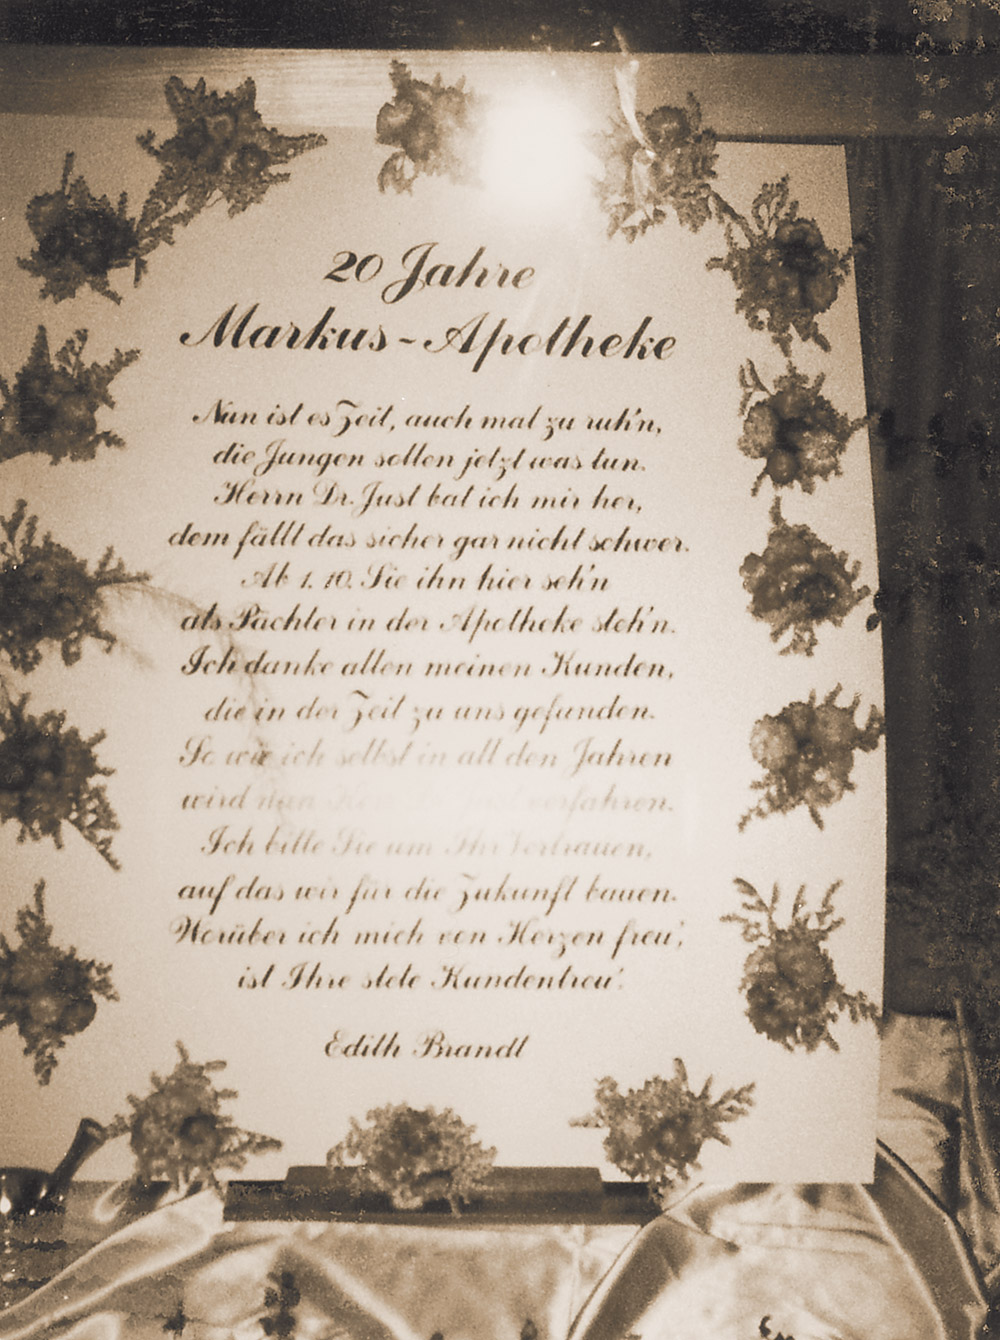 20 Jahre
Markus-Apotheke
Nun ist es Zeit, auch mal zu ruh'n,
die Jungen sollen jetzt was tun.
Herrn Dr. Just bat ich mir her,
dem fällt das sicher gar nicht schwer.
Ab 1. 10. Sie ihn hier seh'n
als Pächter in der Apotheke steh'n.
Ich danke allen meinen Kunden,
die in der Zeit zu uns gefunden.
So wie ich selbst in all den Jahren
wird nun Herr Dr. Just verfahren.
Ich bitte Sie um Ihr Vertrauen,
auf das wir für die Zukunft bauen.
Worüber ich mich von Herzen freu',
ist Ihre stete Kundentreu'.
Edith Brandt